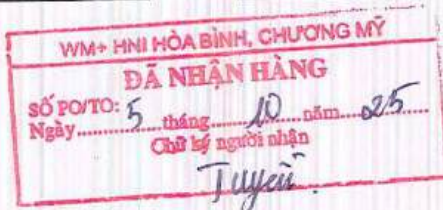 WM+ HNI HÒA BÌNH, CHƯƠNG MỸ
ĐÃ NHẬN HÀNG
SỐ PO/TO:
Ngày 5 tháng 10 năm 25
Chữ ký người nhận
Tuyền